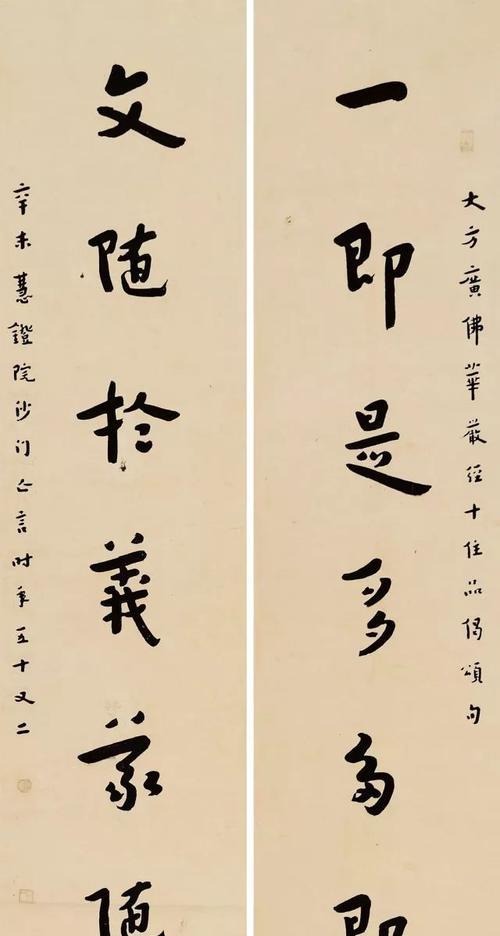 大方廣佛華嚴經十住品偈頌句
一即是多多即
文随於義義随
辛未慧證院沙门亡言時年五十又二